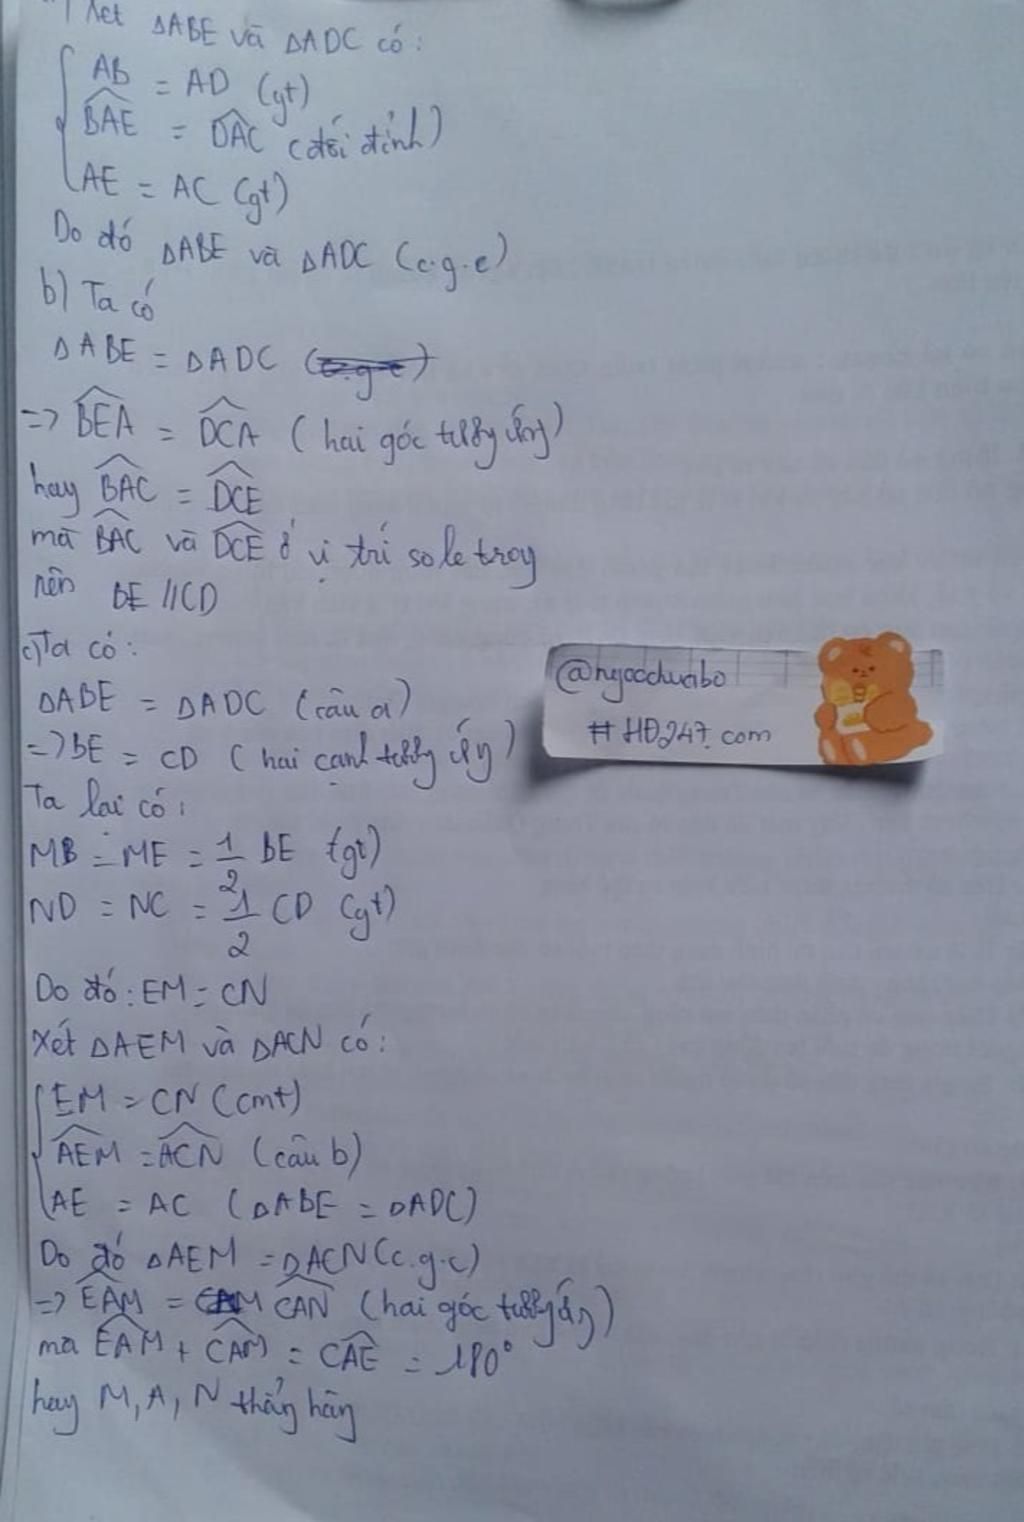 Xét ΔABE và ΔADC có:
AB = AD (gt)
BAE = DAC (đối đỉnh)
AE = AC (gt)
Do đó ΔABE và ΔADC (c.g.c)
b) Ta có
ΔABE = ΔADC
=> BEA = DCA (hai góc tương ứng)
hay BAC = DCE
mà BAC và DCE ở vị trí so le trong
nên BE // CD
c) Ta có:
ΔABE = ΔADC (câu a)
=> BE = CD (hai cạnh tương ứng)
Ta lại có:
MB = ME = 1/2 BE (gt)
ND = NC = 1/2 CD (gt)
Do đó: EM = CN
Xét ΔAEM và ΔACN có:
EM = CN (cmt)
AEM = ACN (câu b)
AE = AC (ΔABE = ΔADC)
Do đó ΔAEM = ΔACN (c.g.c)
=> EAM = CAN (hai góc tương ứng)
mà EAM + CAM = CAE = 180°
hay M, A, N thẳng hàng
@ngocchuibo
#HĐ247.com